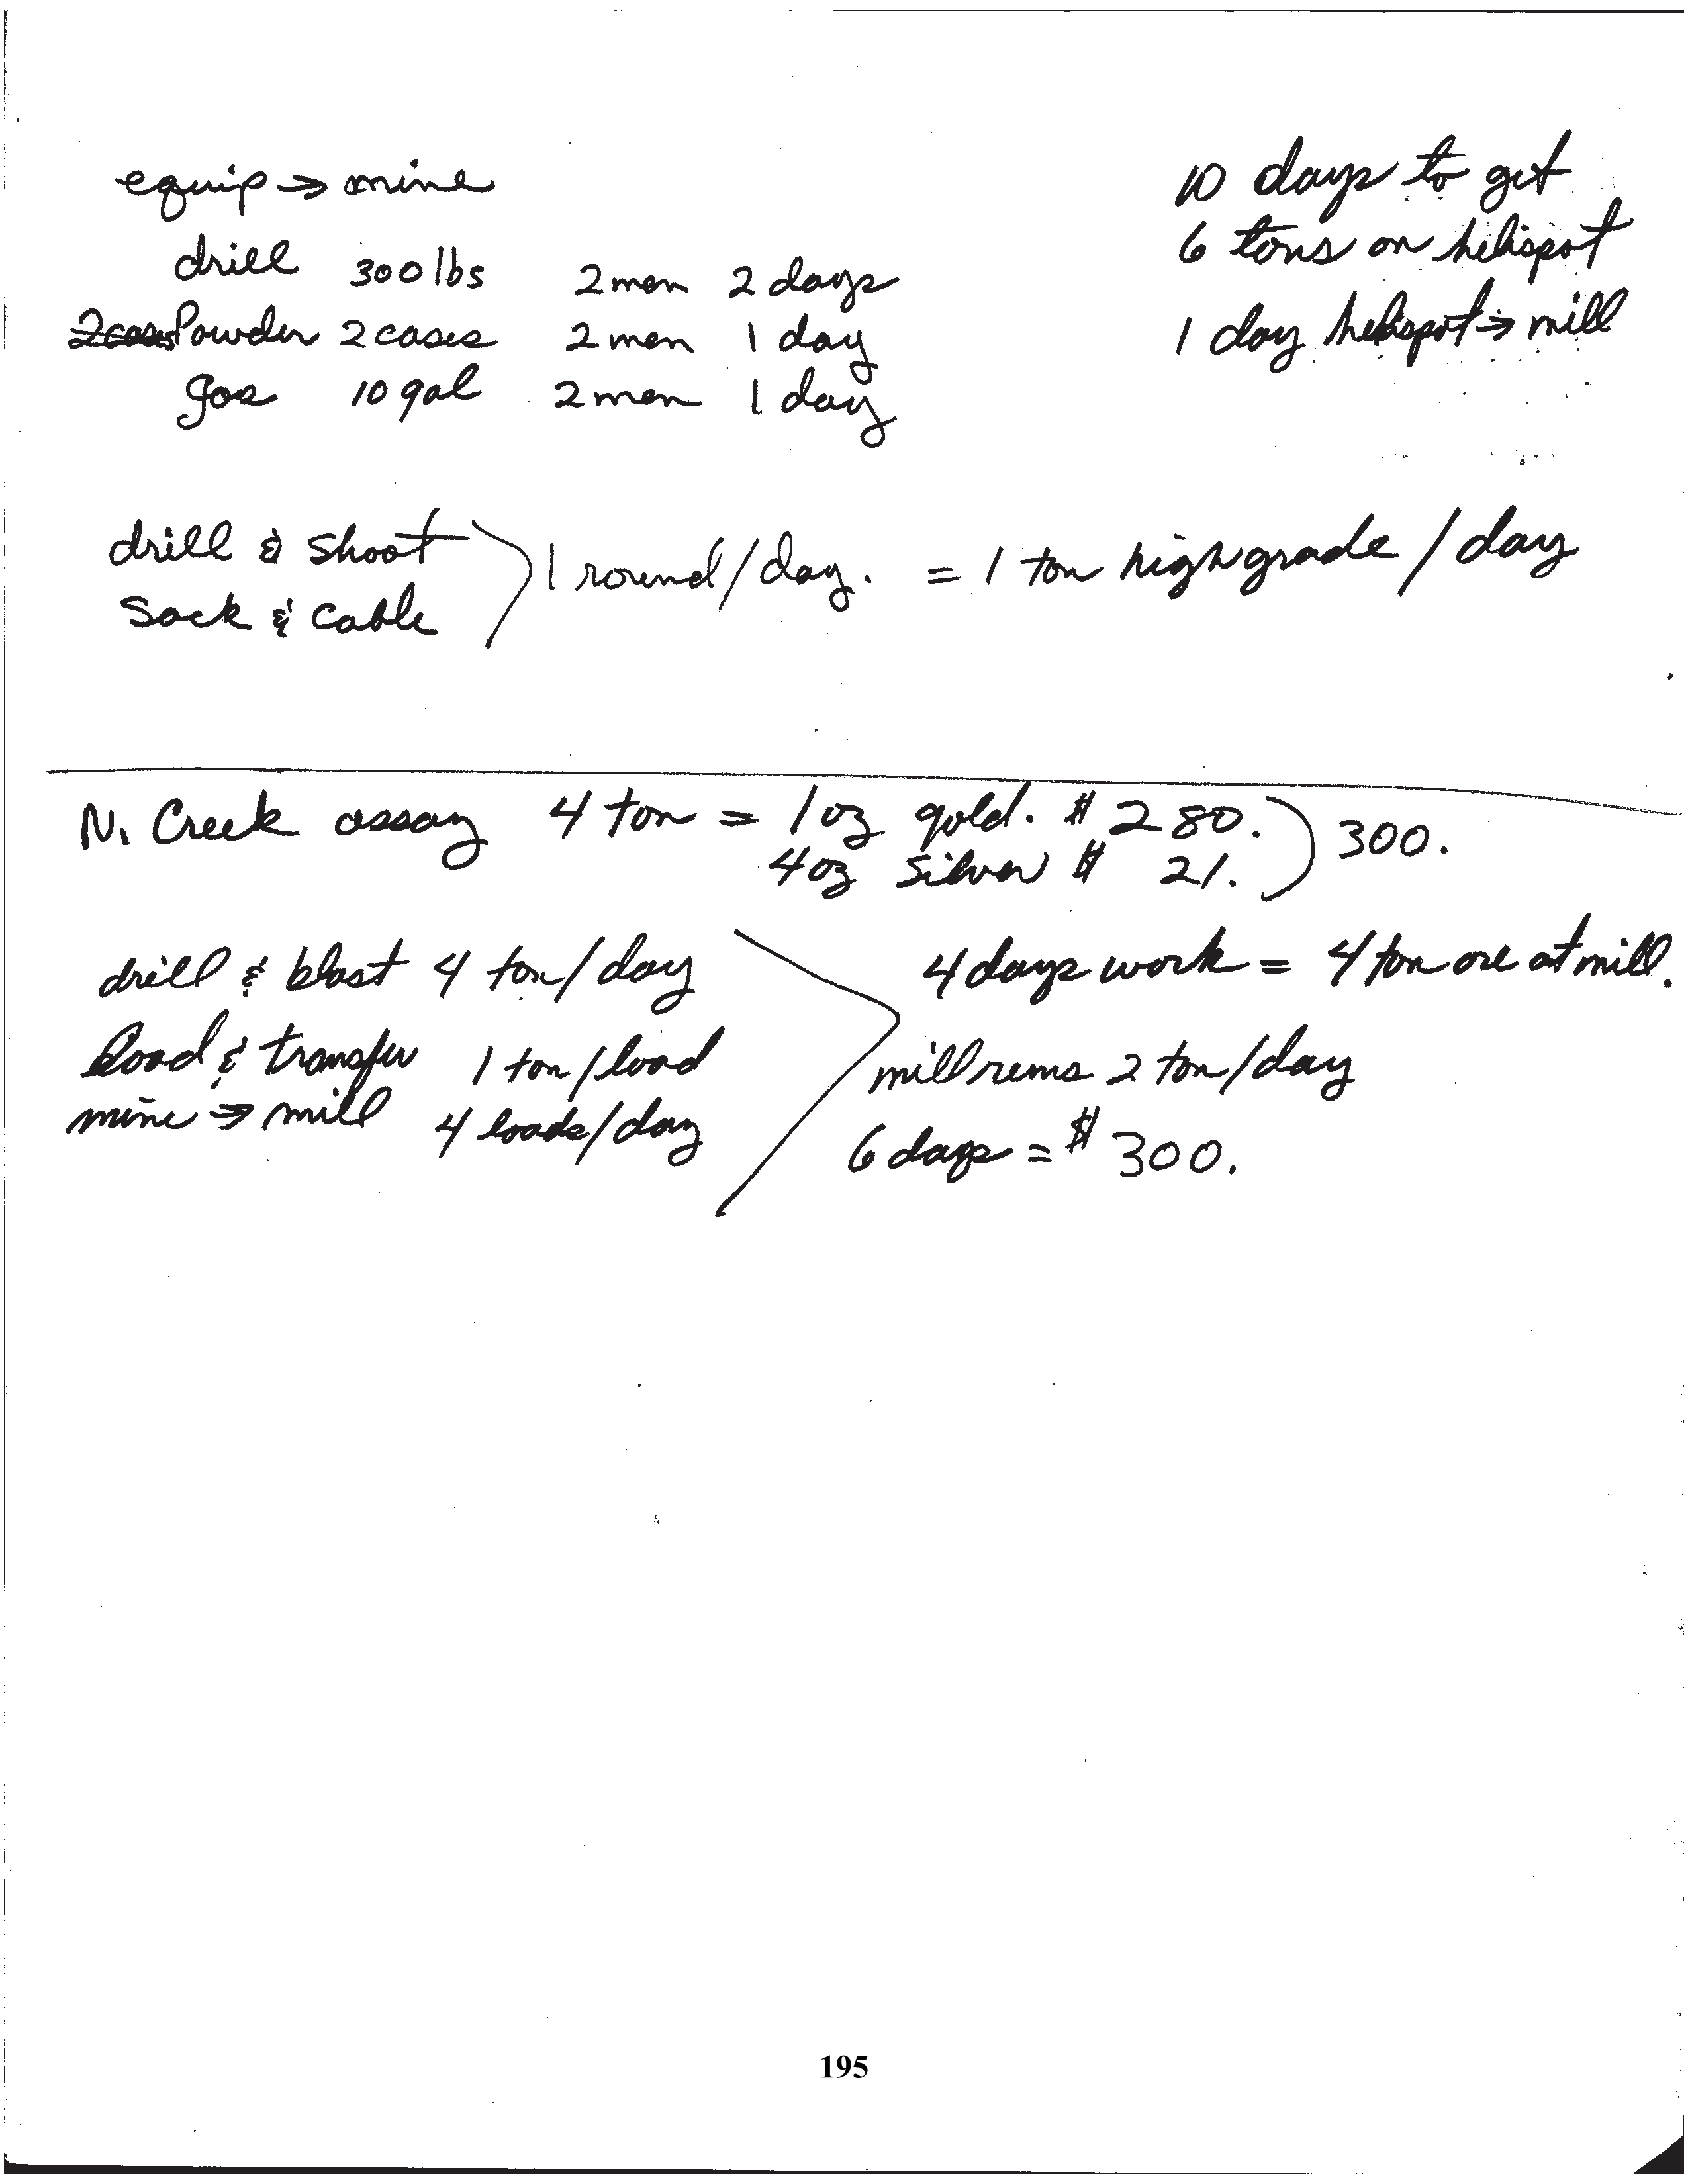 equip → mine
drill 300 lbs 2 men 2 days
2 cases Powder 2 cases 2 men 1 day
gas 10 gal 2 men 1 day
10 days to get
6 tons on helispot
1 day helispot → mill
drill & shoot
sack & cable
1 round/day. = 1 ton highgrade/day
N. Creek assay 4 ton = 1 oz gold. $ 280.
4 oz silver $ 21.
300.
drill & blast 4 ton/day
load & transfer 1 ton/load
mine → mill 4 loads/day
4 days work = 4 ton ore at mill.
mill runs 2 ton/day
6 days = $300.
195